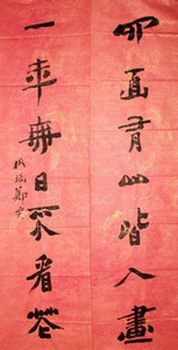 四面有山皆入畫
一年無日不看花
板橋鄭燮